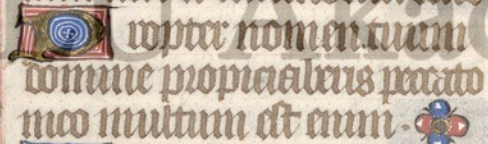 Propter nomen tuum
domine propiciaberis peccato
meo multum est enim